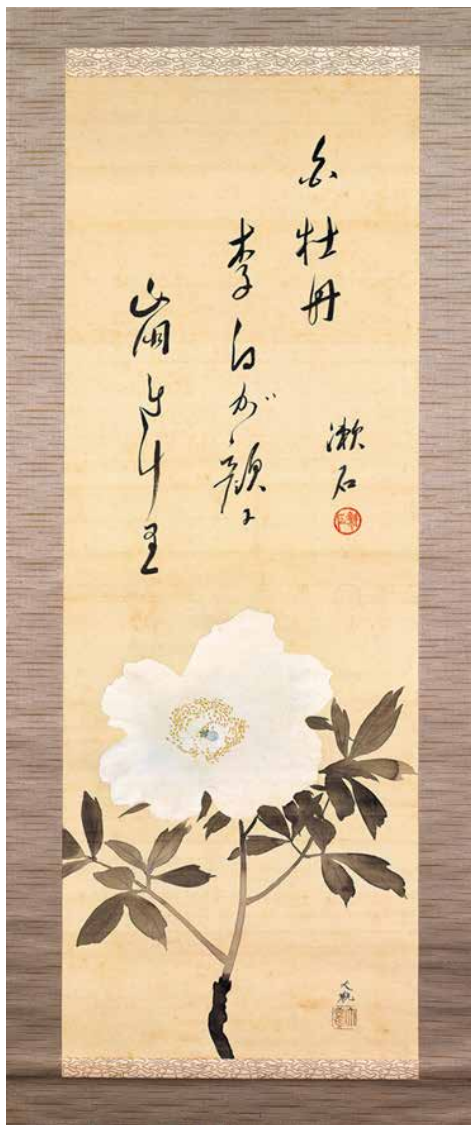 白牡丹
李白が顔に
崩れけり
漱石
大観